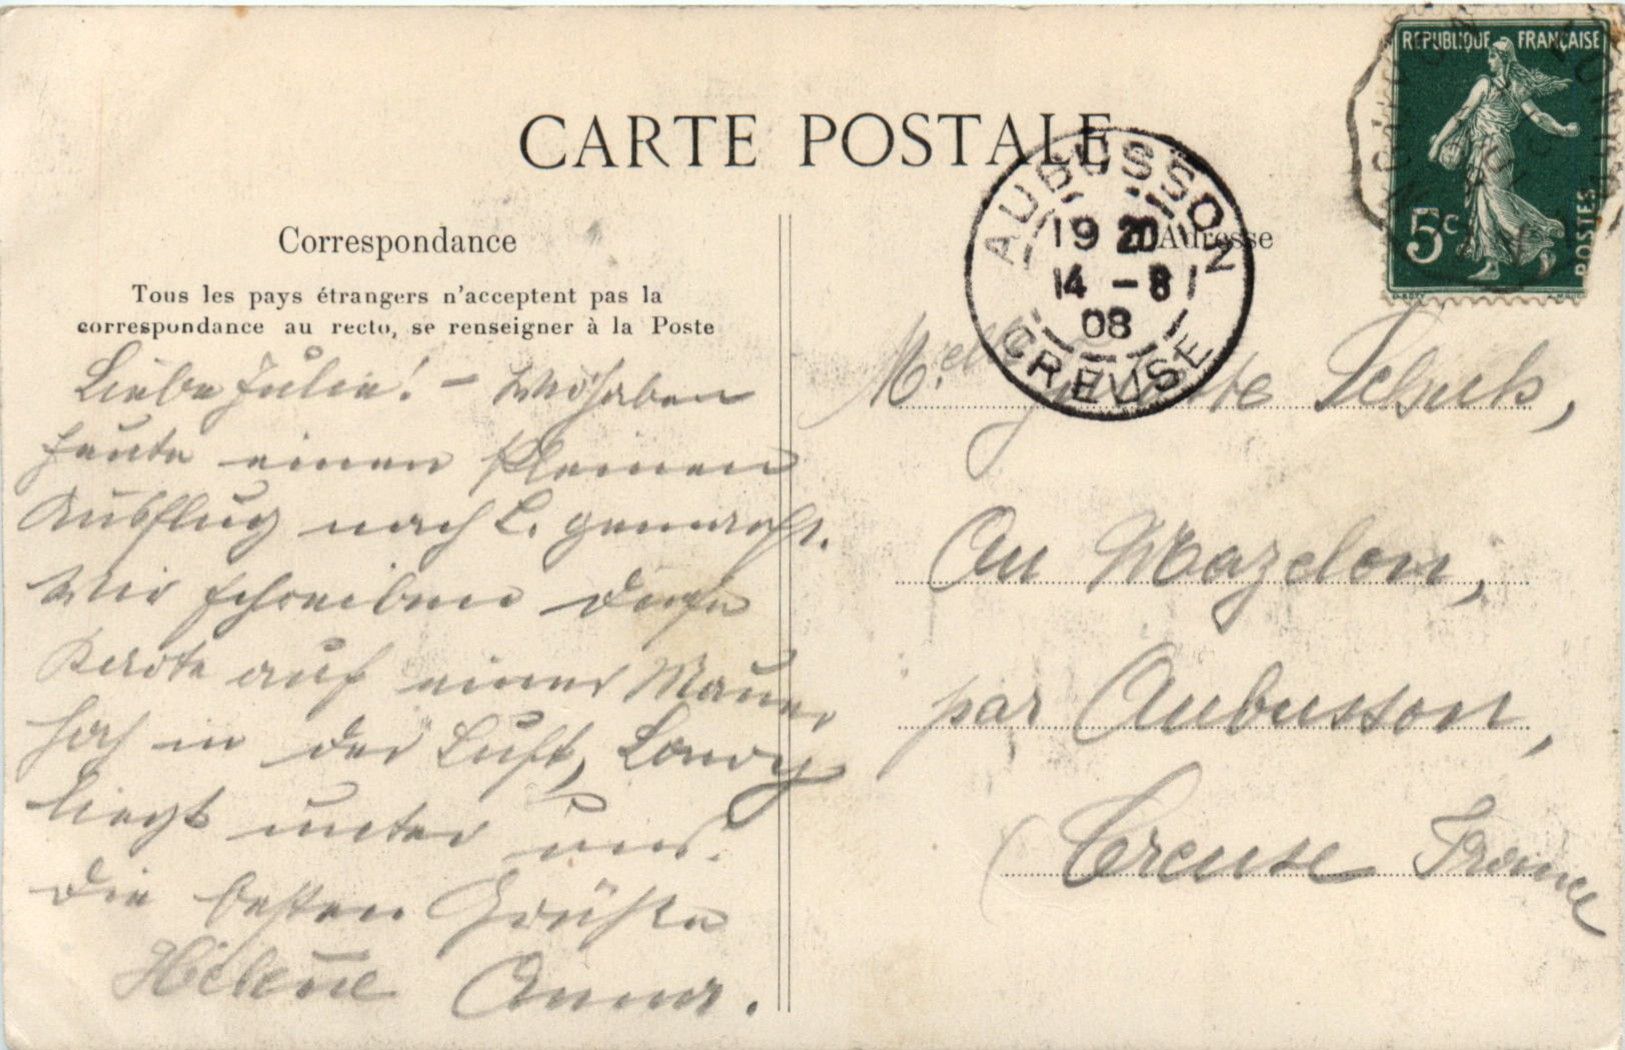 CARTE POSTALE
Correspondance
Tous les pays étrangers n'acceptent pas la
correspondance au recto, se renseigner à la Poste
Adresse
REPUBLIQUE FRANÇAISE
5c
POSTES
AUBUSSON
19 20
14 - 8
08
CREUSE
Liebe Julie! – Wir haben
heute einen kleinen
Ausflug nach L. gemacht.
Wir schreiben diese
Karte auf einer Mauer
hoch in der Luft,
liegt unter uns.
Die besten Grüße
Hélène Anna.
M.elle
Au Mazelon,
par Aubusson,
Creuse France